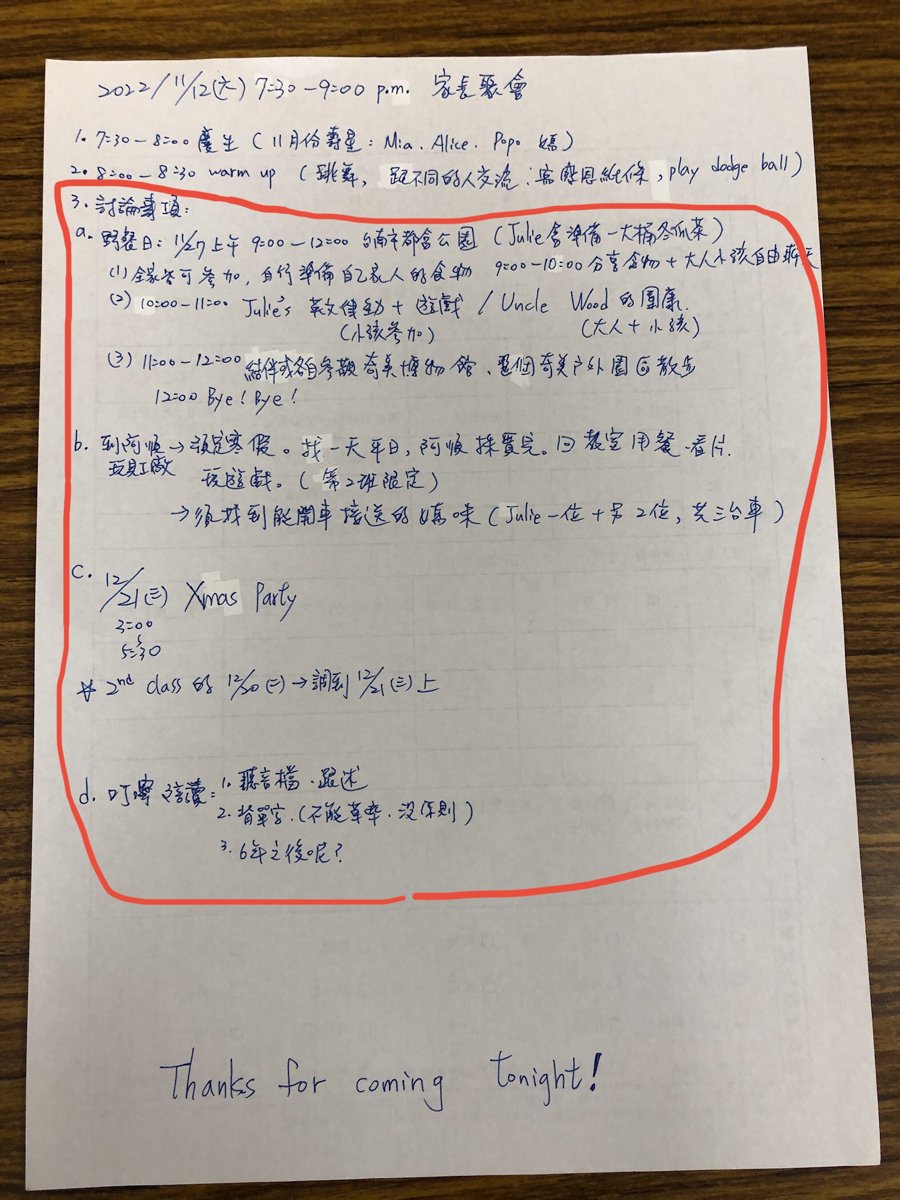 2022/11/12(六) 7:30-9:00 p.m. 家長聚會
1. 7:30-8:00 慶生 (11月份壽星: Mia、Alice、Popo 媽)
2. 8:00-8:30 warm up (跳舞, 跟不同的人交流: 寫感恩紙條, play dodge ball)
3. 討論事項:
a. 野餐日: 11/27 上午 9:00-12:00 台南都會公園 (Julie會準備一大桶冬瓜茶)
(1) 全家皆可參加, 自行準備自己家人的食物 9:00-10:00 分享食物+大人小孩自由聊天
(2) 10:00-11:00 Julie's 英文律動+遊戲 / Uncle Wood 的團康.
(小孩參加) (大人+小孩)
(3) 11:00-12:00 結伴或各自參觀奇美博物館、整個奇美戶外園區散步
12:00 Bye! Bye!
b. 到阿順→預定寒假。找一天平日, 阿順採買完。回教室用餐.看片.
玩具工廠 玩遊戲。(第2班限定)
→須找到能開車接送的媽咪 (Julie一位+另2位, 共三台車)
c. 12/21(三) Xmas Party
3:00
5:30
2nd class 的 12/20(二)→調到12/21(三)上
d. 叮嚀 : 1. 聽音檔.跟述
2. 背單字.(不能草率.沒原則)
3. 6年之後呢?
Thanks for coming tonight!